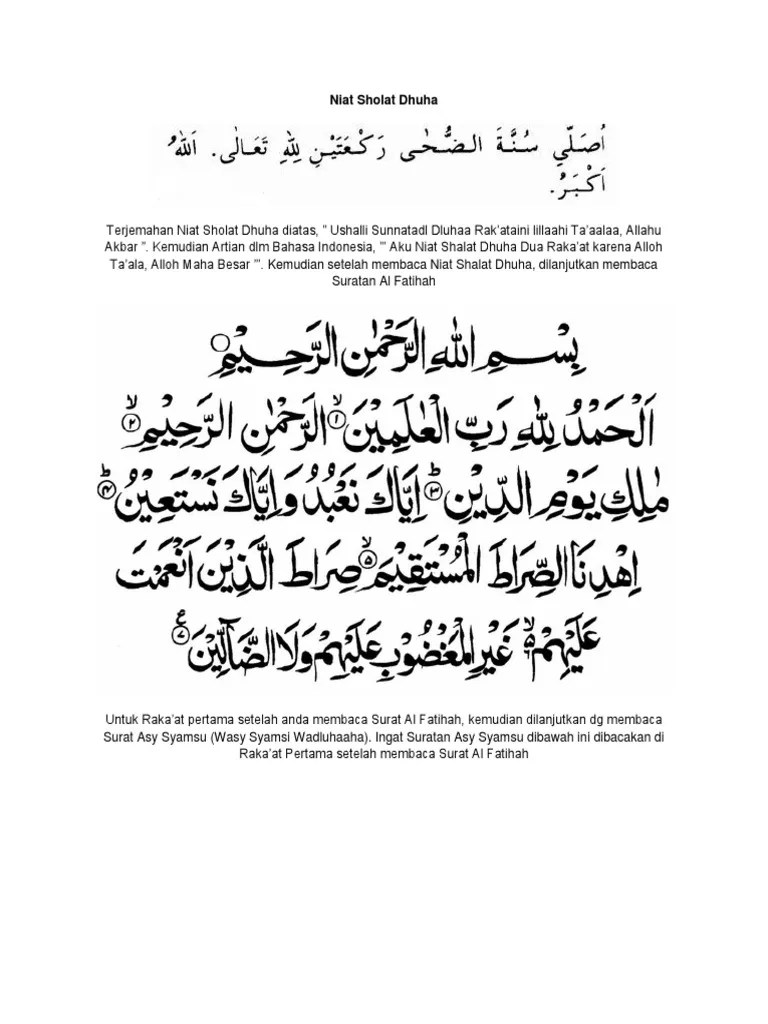 Niat Sholat Dhuha
اُصَلِّي سُنَّةَ الضُّحٰى رَكْعَتَيْنِ لِلّٰهِ تَعَالٰى. اَللّٰهُ
اَكْبَرُ.
Terjemahan Niat Sholat Dhuha diatas, ” Ushalli Sunnatadl Dluhaa Rak’ataini lillaahi Ta’aalaa, Allahu
Akbar ”. Kemudian Artian dlm Bahasa Indonesia, ”’ Aku Niat Shalat Dhuha Dua Raka’at karena Alloh
Ta’ala, Alloh Maha Besar ”’. Kemudian setelah membaca Niat Shalat Dhuha, dilanjutkan membaca
Suratan Al Fatihah
بِسْمِ اللهِ الرَّحْمٰنِ الرَّحِيْمِ
اَلْحَمْدُ لِلّٰهِ رَبِّ الْعٰلَمِيْنَۙ ١ الرَّحْمٰنِ الرَّحِيْمِۙ ٢
مٰلِكِ يَوْمِ الدِّيْنِۗ ٣ اِيَّاكَ نَعْبُدُ وَاِيَّاكَ نَسْتَعِيْنُۗ ۴
اِهْدِنَا الصِّرَاطَ الْمُسْتَقِيْمَۙ ۵ صِرَاطَ الَّذِيْنَ اَنْعَمْتَ
عَلَيْهِمْ ۙ۬ۦ غَيْرِ الْمَغْضُوْبِ عَلَيْهِمْ وَلَا الضَّآلِّيْنَ ࣖ ٧
Untuk Raka’at pertama setelah anda membaca Surat Al Fatihah, kemudian dilanjutkan dg membaca
Surat Asy Syamsu (Wasy Syamsi Wadluhaaha). Ingat Suratan Asy Syamsu dibawah ini dibacakan di
Raka’at Pertama setelah membaca Surat Al Fatihah